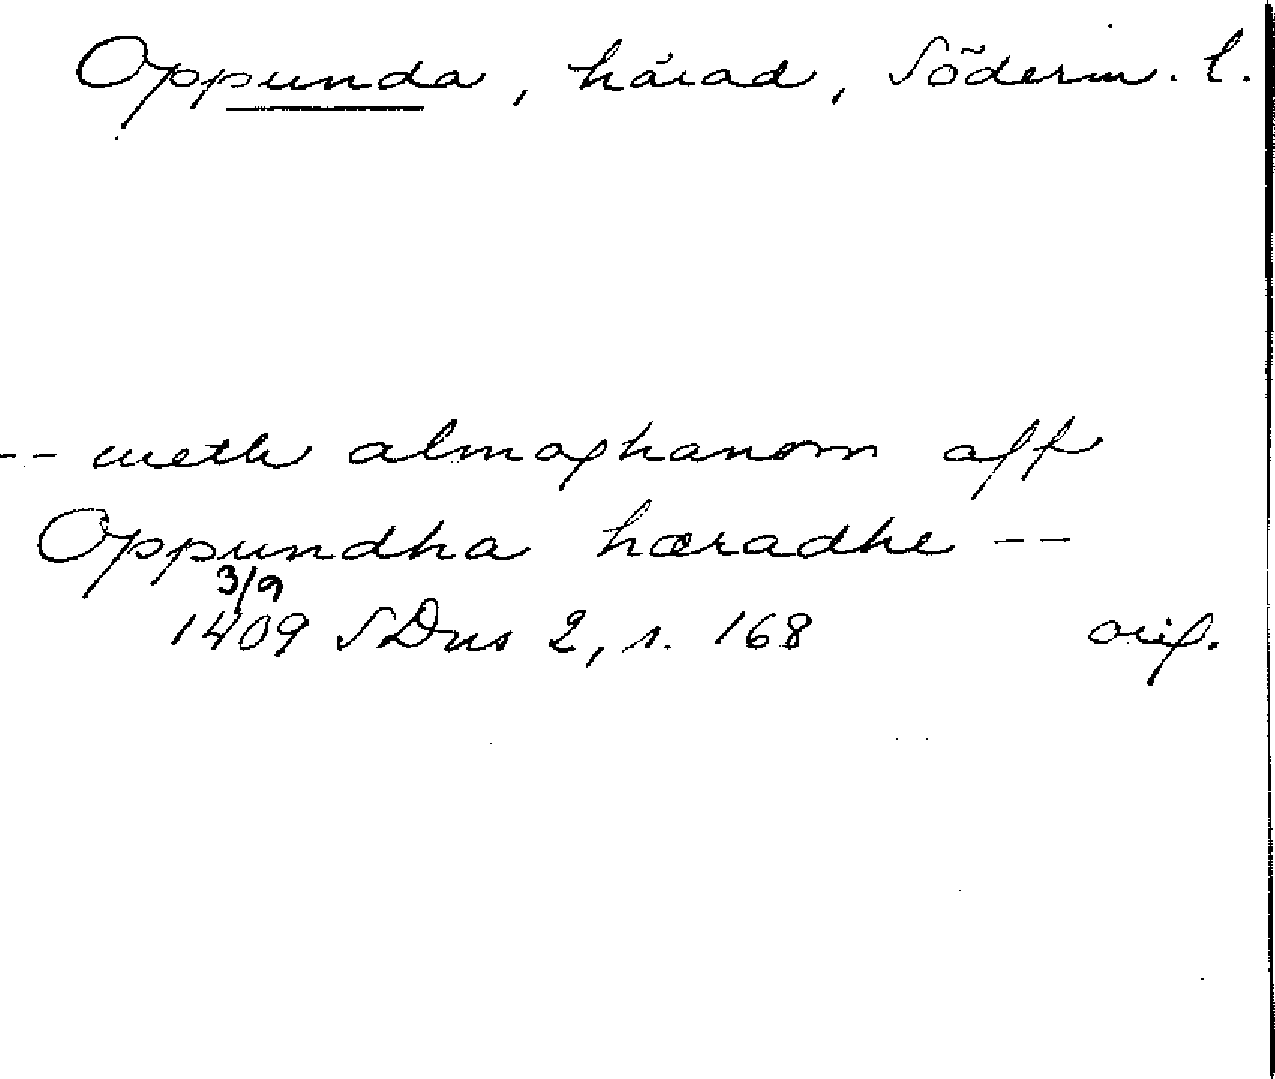 Oppunda, härad, Söderm. l.
-- meth almoghanom aff
Oppundha hæradhe --
3/9
1409 SDns 2, s. 168 orig.